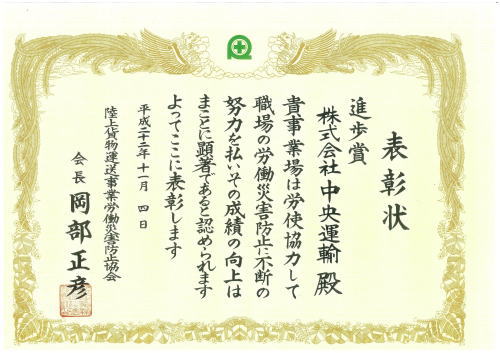 表彰状
進歩賞
株式会社中央運輸殿
貴事業場は労使協力して
職場の労働災害防止に不断の
努力を払いその成績の向上は
まことに顕著であると認められます
よってここに表彰します
平成二十二年十一月 四日
陸上貨物運送事業労働災害防止協会
会長 岡部正彦